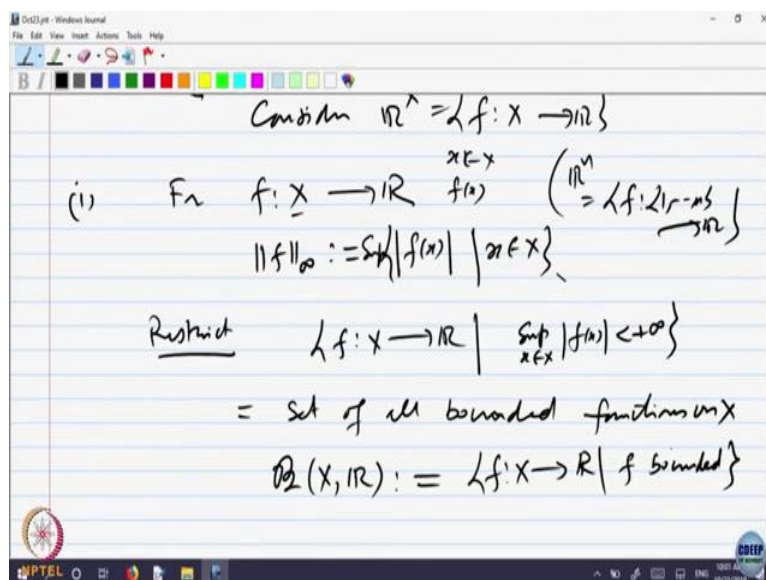 Oct23.jnt - Windows Journal
File Edit View Insert Actions Tools Help
B I
Consider ℝ^X = {f : X → ℝ}
(1) For f : X → ℝ
x ∈ X f(x)
(ℝ^n = {f : {1, - n} → ℝ}
||f||∞ := Sup{|f(x)| | x ∈ X}
Restrict {f : X → ℝ | Sup x∈X |f(x)| < +∞}
= Set of all bounded functions on X
B(X, ℝ) : = {f : X → ℝ | f bounded}
NPTEL
CDEEP
ENG